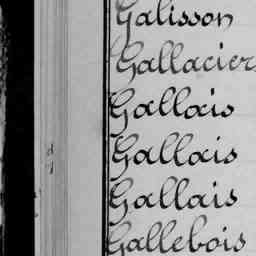 Galisson
Gallacier
Gallais
Gallais
Gallais
Gallebois